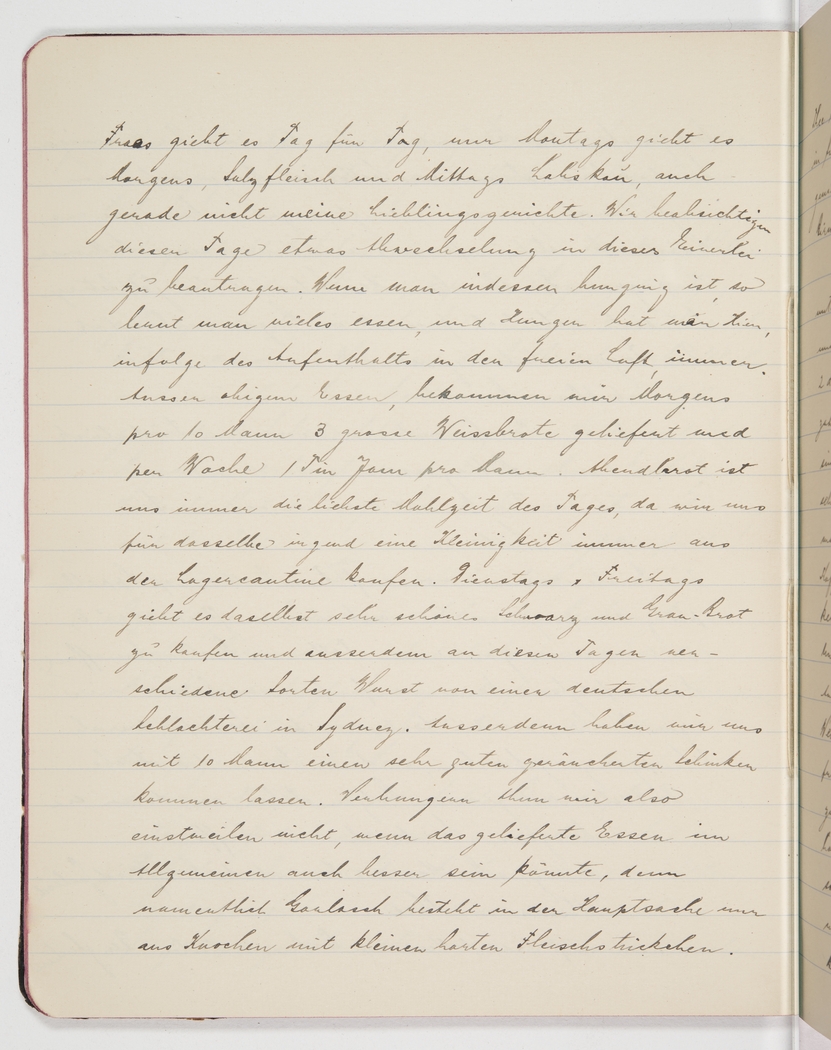 Frass giebt es Tag für Tag, nur Montags giebt es
Morgens, Salzfleisch und Mittags Labskau, auch
gerade nicht meine Lieblingsgerichte. Wir beabsichtigen
diesen Tage etwas Abwechselung in dieses Einerlei
zu beantragen. Wenn man indessen hungrig ist, so
lernt man vieles essen, und Hunger hat man hier,
infolge des Aufenthalts in der freien Luft, immer.
Ausser obigem Essen, bekommen wir Morgens
pro 10 Mann 3 grosse Weissbrote geliefert und
per Woche 1 Tin Jam pro Mann. Abendbrot ist
uns immer die liebste Mahlzeit des Tages, da wir uns
für dasselbe irgend eine Kleinigkeit immer aus
der Lagercantine kaufen. Dienstags & Freitags
giebt es daselbst sehr schönes Schwarz und Grau-Brot
zu kaufen und ausserdem an diesen Tagen ver-
schiedene Sorten Wurst von einer deutschen
Schlachterei in Sydney. Ausserdem haben wir uns
mit 10 Mann einen sehr guten geräucherten Schinken
kommen lassen. Verhungern thun wir also
einstweilen nicht, wenn das gelieferte Essen im
Allgemeinen auch besser sein könnte, denn
namentlich Goulasch besteht in der Hauptsache nur
aus Knochen mit kleinen harten Fleischstückchen.